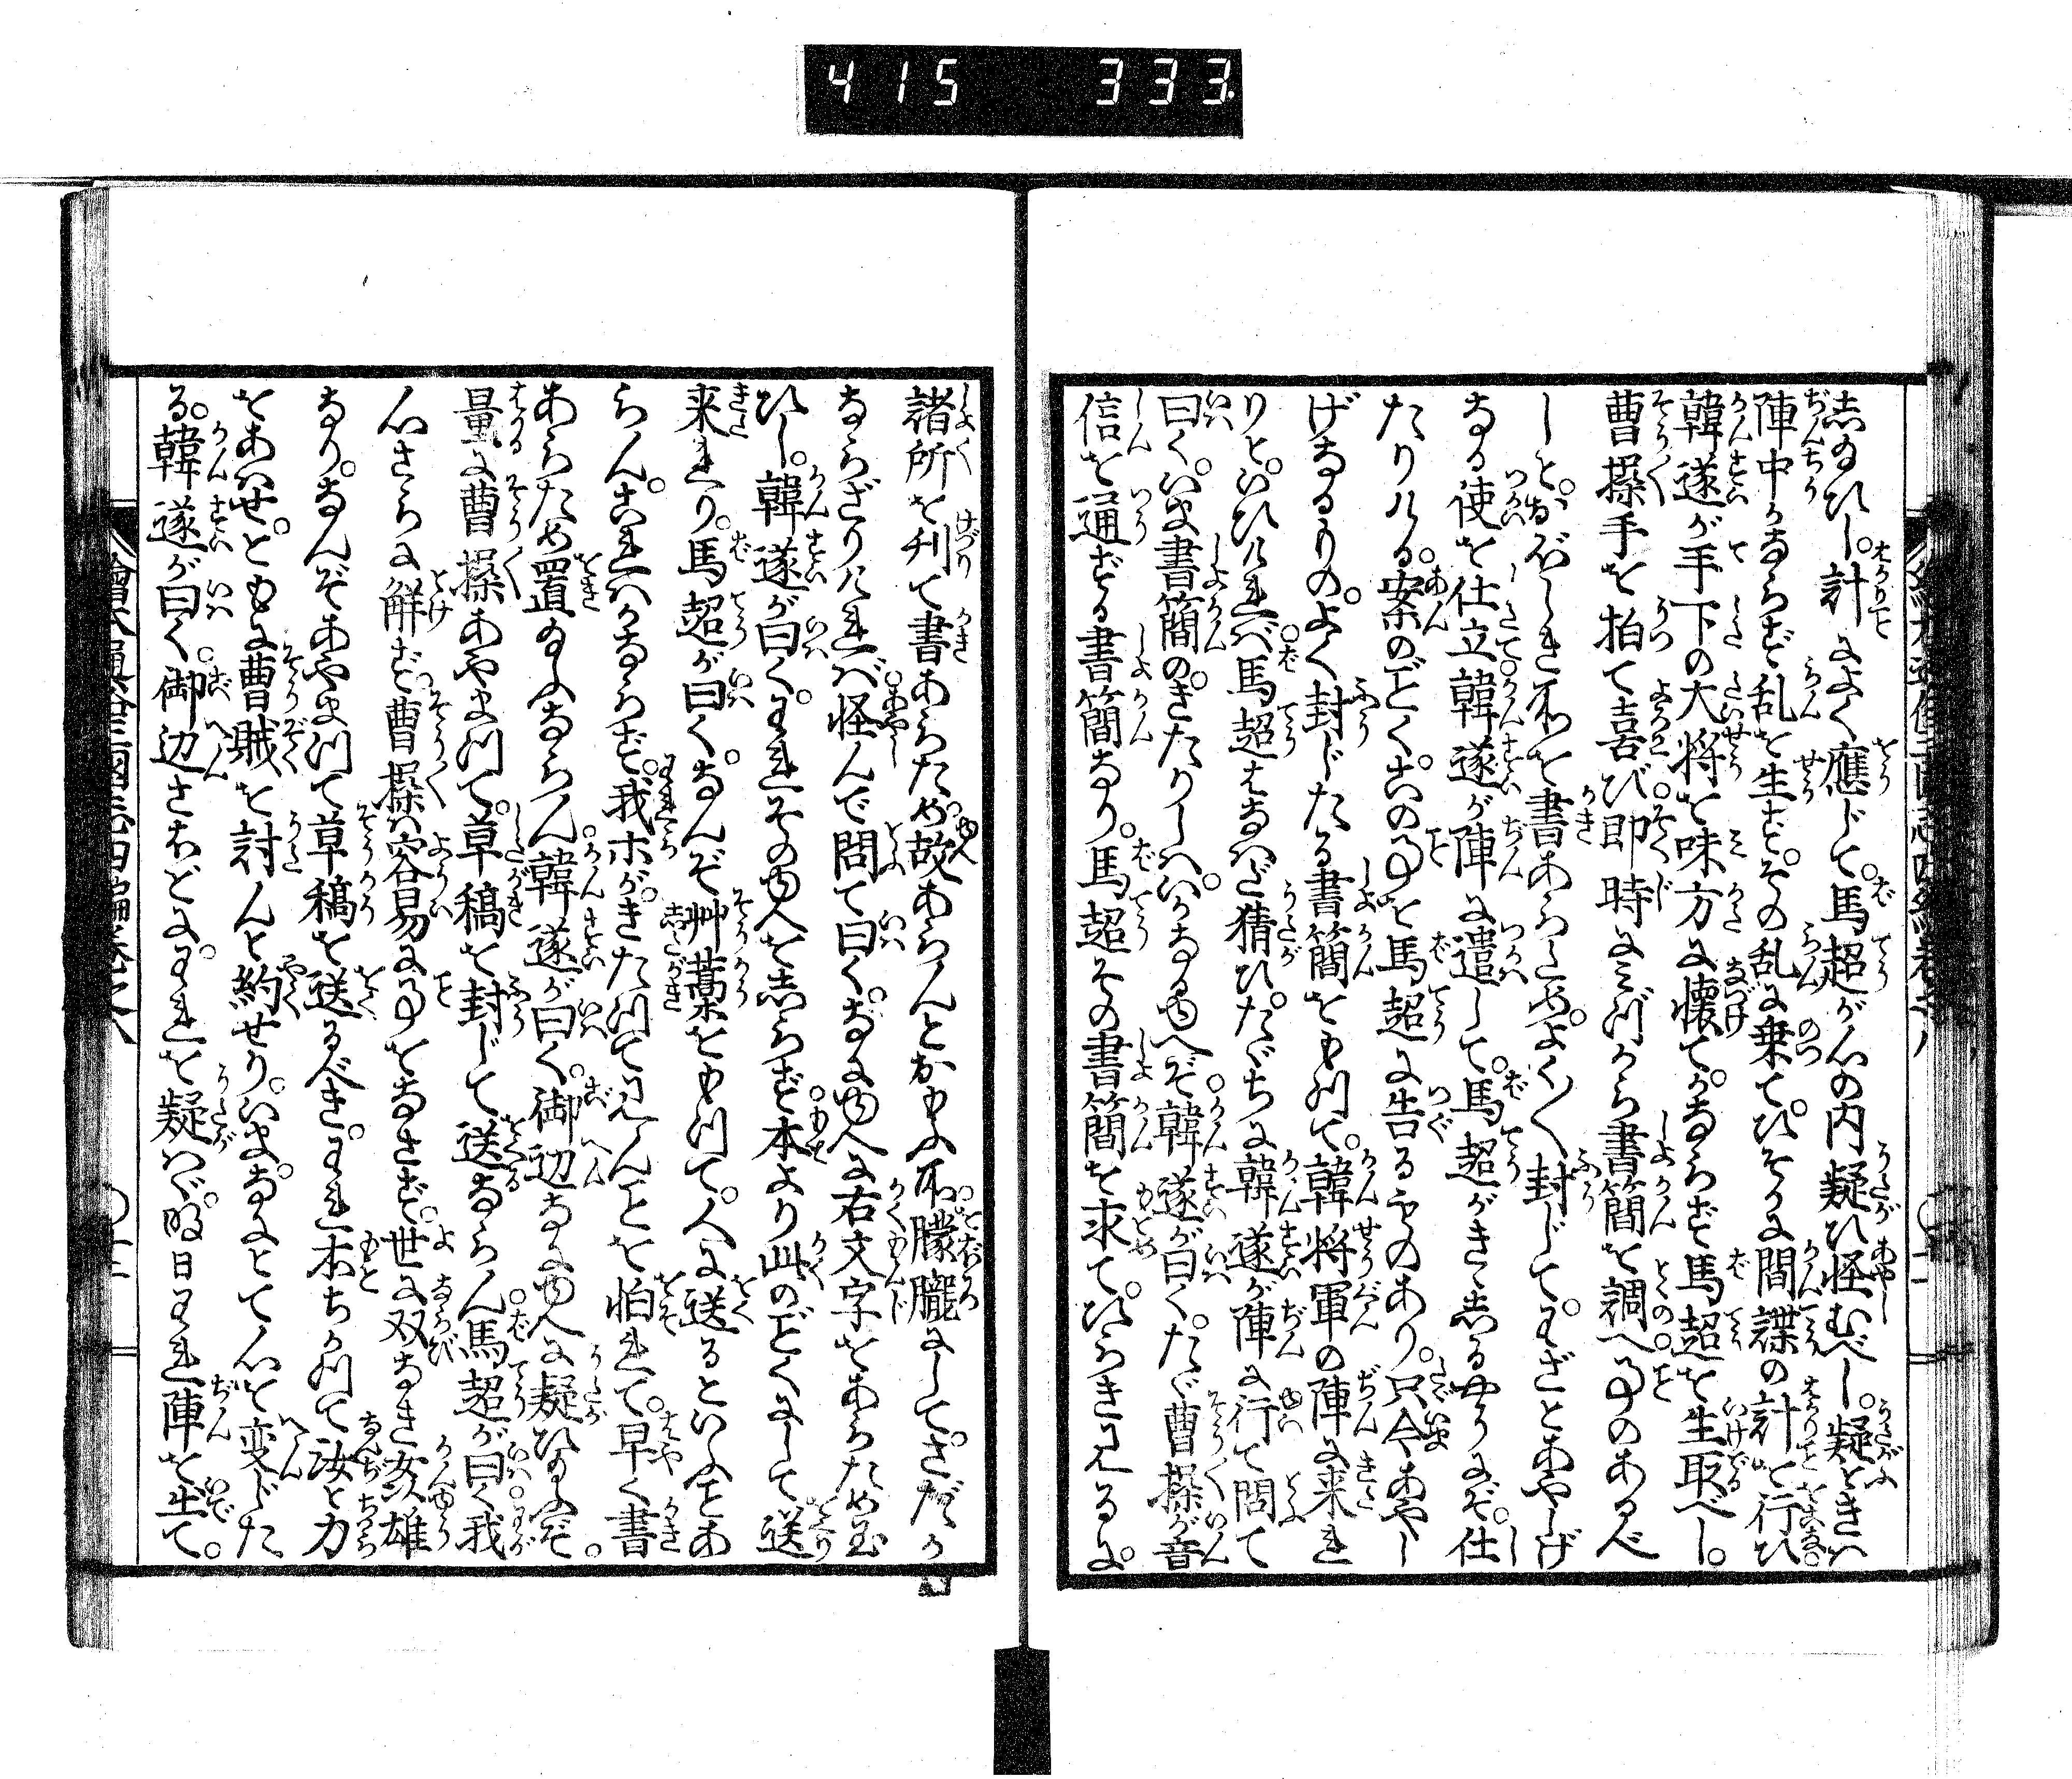 415 333
給ひし。計によく應じて。馬超が心の内疑ひ怪むべし。疑ときハ
陣中かならず乱を生ず。その乱に乗て。ひそかに間諜の計を行ひ
韓遂が手下の大将を味方に懐て。かならず馬超を生取べし。
曹操手を拍て喜び。即時にミづから書簡を調へ。事のあるべ
しと。おぼしき所を書あらため。よく〱封じて。わざとあやしげ
なる使を仕立。韓遂が陣に遣して。馬超がきゝしるやうにぞ。仕
たりける。案のごとく。この事を馬超に告るものあり。只今あやし
げなるもの。よく封じたる書簡をもつて。韓将軍の陣に来れ
りと。いひければ。馬超はなハだ猜ひ。たゞちに韓遂が陣に行て問て
曰く。いま書簡の。きたりしハ。いかなるゆへぞ。韓遂が曰く。たゞ曹操が音
信を通ずる書簡なり。馬超その書簡を求て。ひらき見るに。
諸所を刊て書あらため。故あらんとおもふ所。朦朧にして。さだか
ならざりければ。怪んで問て曰く。なにゆへに右文字をあらため玉
ひし。韓遂が曰く。われそのゆへをしらず。本より此のごとくにして送
来れり。馬超が曰く。なんぞ艸藁をもつて。人に送るといふことあ
らん。これハかならず。我ホが。きたつて見んことを怕れて。早く書
あらため置給ふならん。韓遂が曰く。御辺なにゆへに疑ひ給ふぞ。
量に曹操あやまつて。草稿を封じて送るならん。馬超が曰く。我
心さらに解ず。曹操ハ容易に事をなさず。世に双なき姦雄
なり。なんぞあやまつて草稿を送るべき。われ本ちかつて汝と力
をあハせ。ともに曹賊を討んと約せり。いま。なにとて心を変じた
る。韓遂が曰く。御辺さほどに。われを疑ハゞ。明日われ陣を出て。